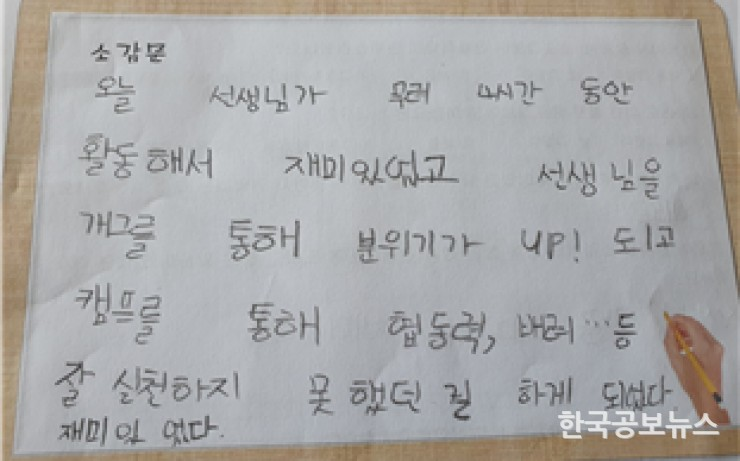 소감문
오늘 선생님가 무려 4시간 동안
활동해서 재미있었고 선생님을
개그를 통해 분위기가 UP! 도이고
캠프를 통해 협동력, 배려…등
잘 실천하지 못했던 걸 하게 되었다
재미있 었다.
한국공보뉴스